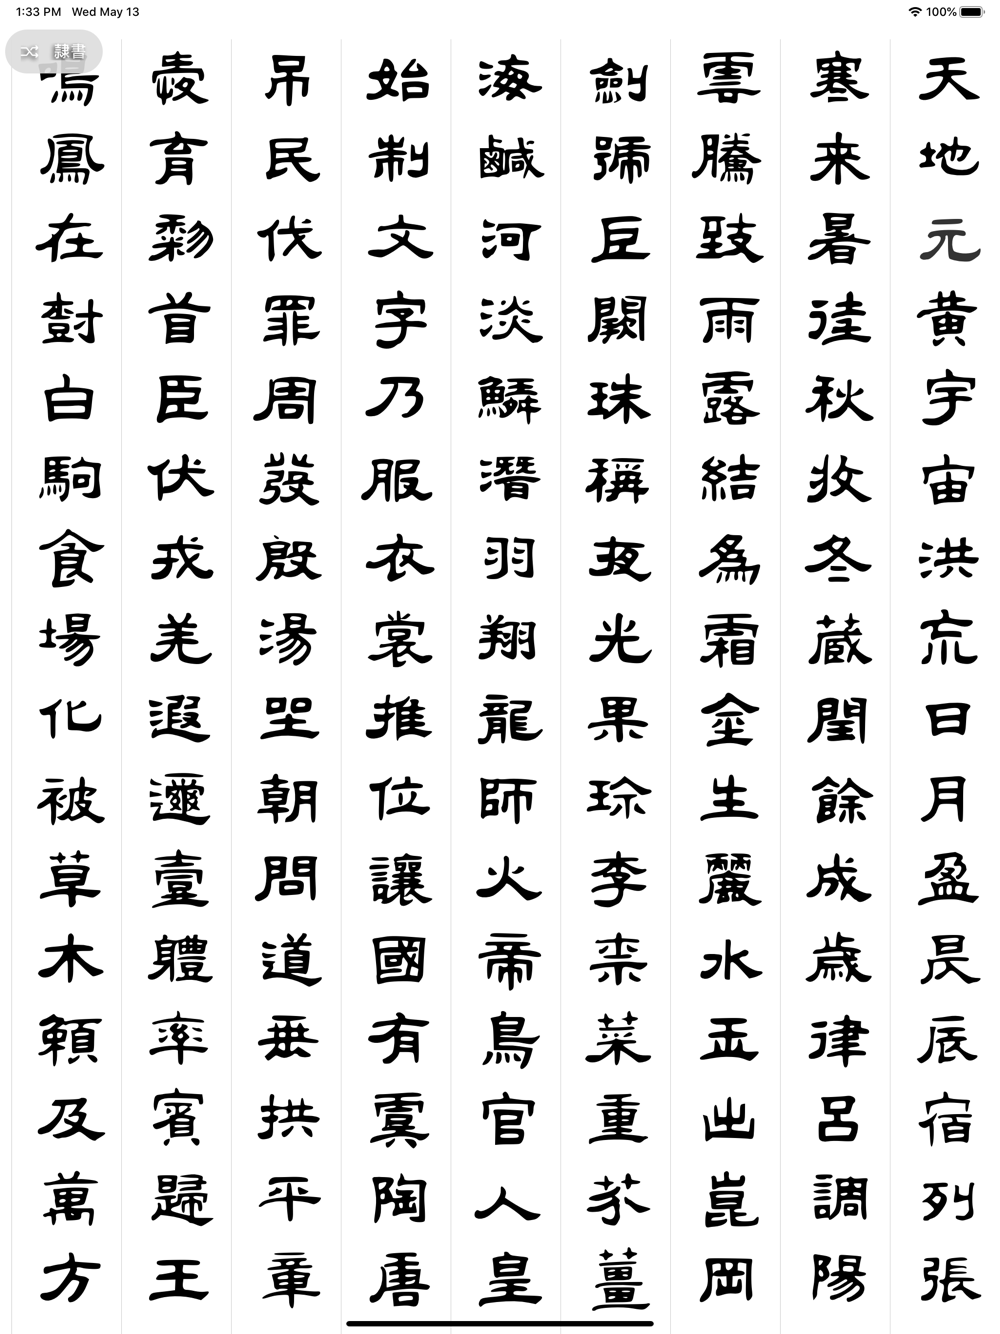 1:33 PM Wed May 13
100%
隷書
天地元黄宇宙洪巟日月盈昃辰宿列張
寒来暑往秋收冬蔵閏餘成歲律呂調陽
雲騰致雨露結為霜金生麗水玉出崑岡
劍號巨闕珠稱夜光果珎李柰菜重芥薑
海鹹河淡鱗潛羽翔龍師火帝鳥官人皇
始制文字乃服衣裳推位讓國有虞陶唐
吊民伐罪周發殷湯坐朝問道垂拱平章
愛育黎首臣伏戎羌遐邇壹體率賓歸王
鳴鳳在樹白駒食場化被草木賴及萬方